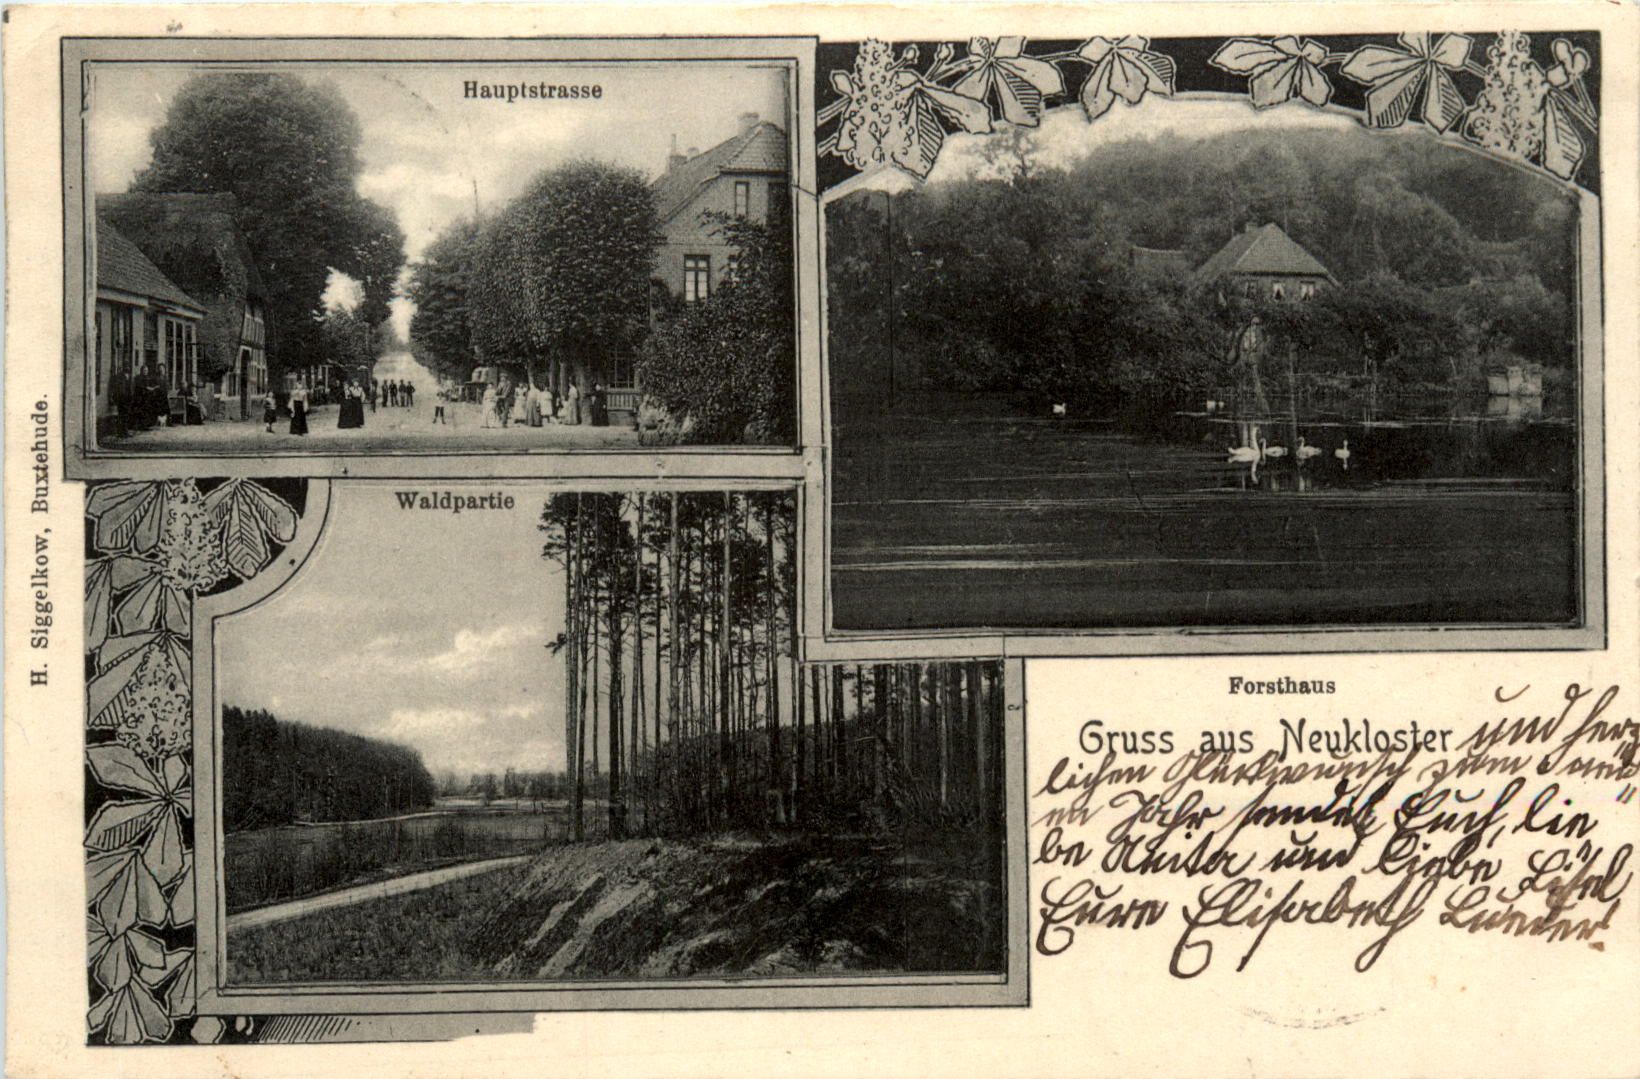 Hauptstrasse
Waldpartie
H. Siggelkow, Buxtehude.
Forsthaus
Gruss aus Neukloster und herz
lichen Glückwunsch zum
en Jahr sendet Euch, lie"
be Anita und liebe Lisel,
Eure Elisabeth